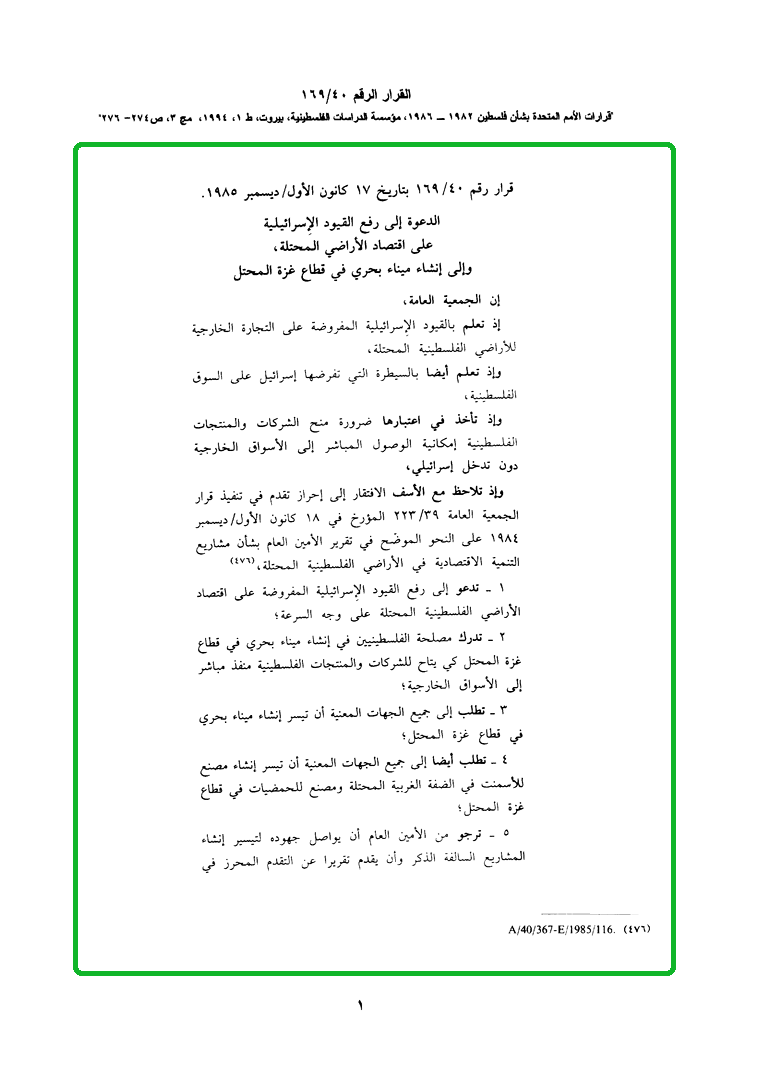 القرار الرقم ١٦٩/٤٠
"قرارات الأمم المتحدة بشأن فلسطين ١٩٨٢ ـــ ١٩٨٦، مؤسسة الدراسات الفلسطينية، بيروت، ط ١، ١٩٩٤، مج ٣، ص٢٧٤- ٢٧٦"
قرار رقم ١٦٩/٤٠ بتاريخ ١٧ كانون الأول/ديسمبر ١٩٨٥.
الدعوة إلى رفع القيود الإسرائيلية
على اقتصاد الأراضي المحتلة،
وإلى إنشاء ميناء بحري في قطاع غزة المحتل
إن الجمعية العامة،
إذ تعلم بالقيود الإسرائيلية المفروضة على التجارة الخارجية
للأراضي الفلسطينية المحتلة،
وإذ تعلم أيضا بالسيطرة التي تفرضها إسرائيل على السوق
الفلسطينية،
وإذ تأخذ في اعتبارها ضرورة منح الشركات والمنتجات
الفلسطينية إمكانية الوصول المباشر إلى الأسواق الخارجية
دون تدخل إسرائيلي،
وإذ تلاحظ مع الأسف الافتقار إلى إحراز تقدم في تنفيذ قرار
الجمعية العامة ٢٢٣/٣٩ المؤرخ في ١٨ كانون الأول/ديسمبر
١٩٨٤ على النحو الموضّح في تقرير الأمين العام بشأن مشاريع
التنمية الاقتصادية في الأراضي الفلسطينية المحتلة،(٤٧٦)
١ ـ تدعو إلى رفع القيود الإسرائيلية المفروضة على اقتصاد
الأراضي الفلسطينية المحتلة على وجه السرعة؛
٢ ـ تدرك مصلحة الفلسطينيين في إنشاء ميناء بحري في قطاع
غزة المحتل كي يتاح للشركات والمنتجات الفلسطينية منفذ مباشر
إلى الأسواق الخارجية؛
٣ ـ تطلب إلى جميع الجهات المعنية أن تيسر إنشاء ميناء بحري
في قطاع غزة المحتل؛
٤ ـ تطلب أيضا إلى جميع الجهات المعنية أن تيسر إنشاء مصنع
للأسمنت في الضفة الغربية المحتلة ومصنع للحمضيات في قطاع
غزة المحتل؛
٥ ـ ترجو من الأمين العام أن يواصل جهوده لتيسير إنشاء
المشاريع السالفة الذكر وأن يقدم تقريرا عن التقدم المحرز في
(٤٧٦) A/40/367-E/1985/116.
١